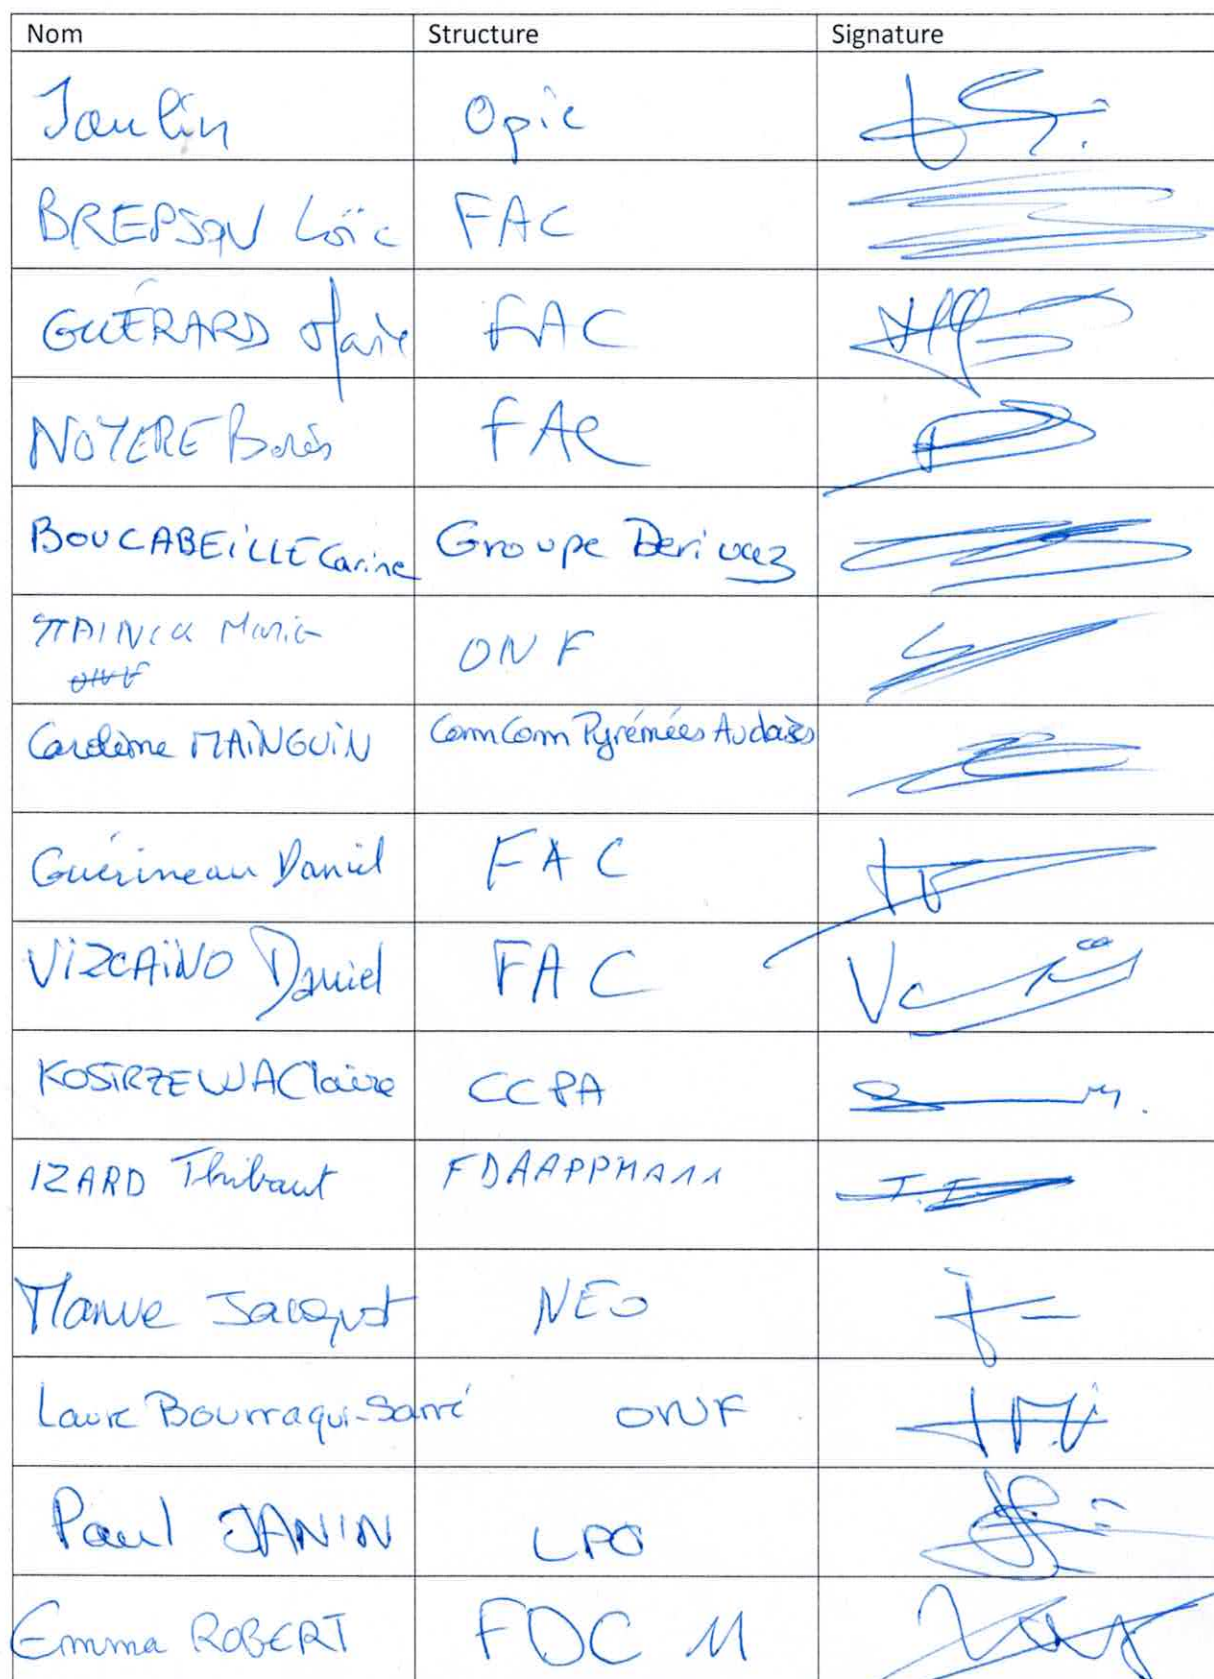 Nom Structure Signature
Joulin Opie
BREPSON Loïc FAC
GUÉRARD Marie FAC
NOYERE Boris FAC
BOUCABEiLLE Carine Groupe Berivaz
Marie ONF
ONF
Caroline MAiNGUiN ComCom Pyrénées Audoises
Guérineau Daniel FAC
ViZCAiNO Daniel FAC
KOSTRZEWA Claire CCPA
IZARD Thibaut FDAAPPMA11
Manue Jacquot NEO
Laure Bourraqui-Sarré ONF
Paul JANIN LPO
Emma ROBERT FDC 11